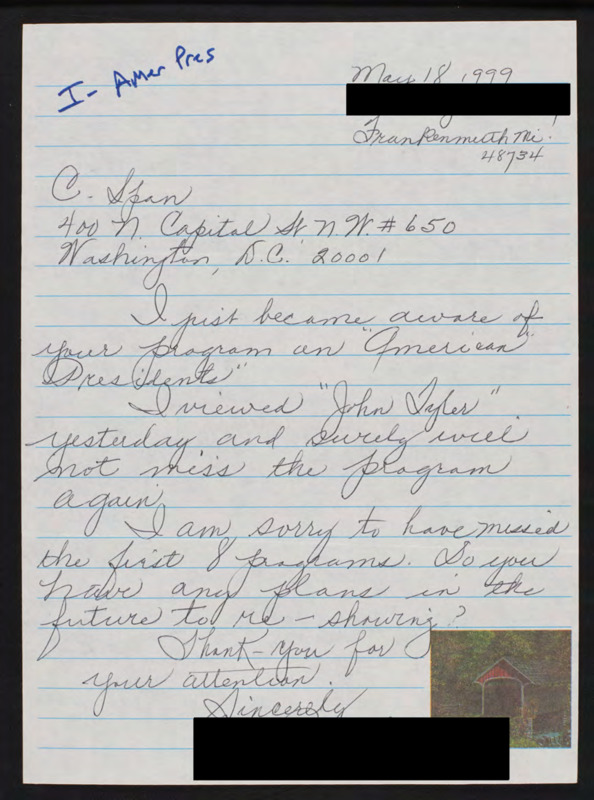 I - Amer Pres
May 18, 1999
Frankenmuth Mi.
48734
C-Span
400 N. Capital St N.W. # 650
Washington, D.C. 20001
I just became aware of
your program on "American
Presidents"
I viewed "John Tyler"
yesterday and surely will
not miss the program
again.
I am sorry to have missed
the first 8 programs. Do you
have any plans in the
future to re-showing?
Thank-you for
your attention.
Sincerely